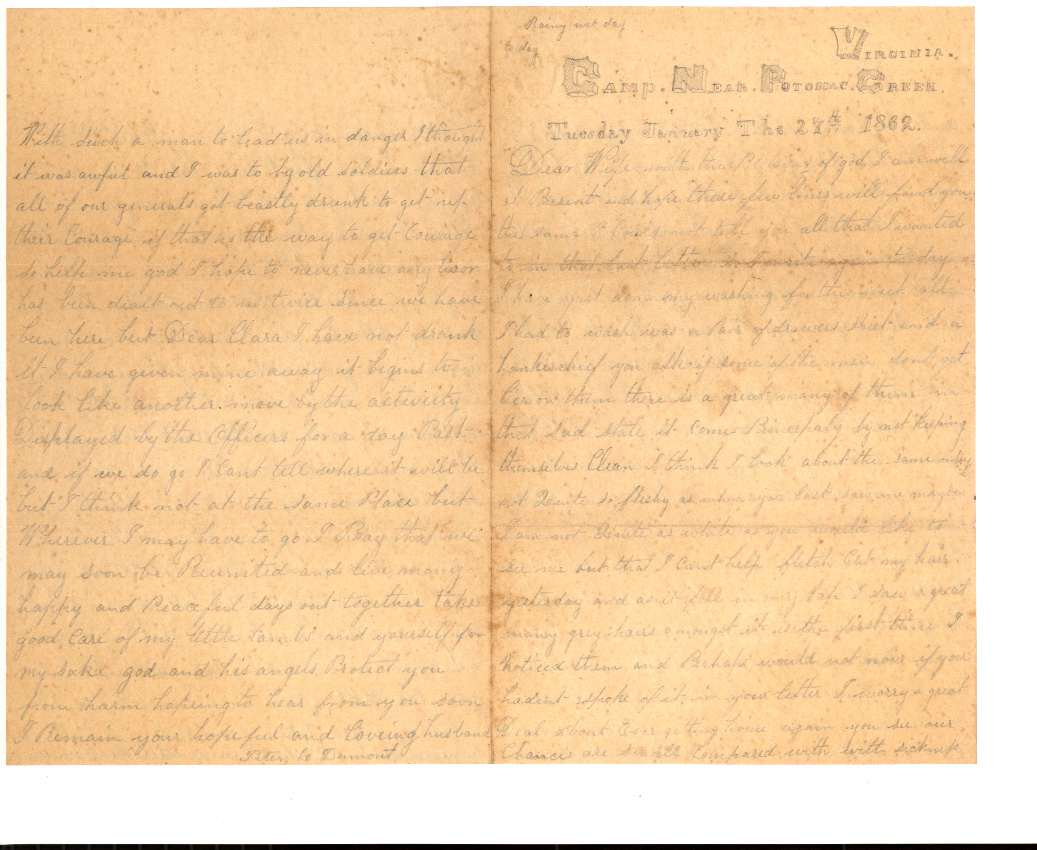 Rainy wet day
to day
Virginia.
Camp. Near. Potomac. Creek.
Tuesday January The 27th 1862.
Dear Wife with the Blessing of god I am well
at Present and hope these few lines will find you
the same I could not tell you all that I wanted
to in that last letter so I write again to day
I have just done my washing for this week all
I had to wash was a Pair of drawers shirt and a
hankerchief you ask if some of the men dont get
lice on them there is a great many of them in
that sad state it comes Princepaly by not keeping
themselves Clean I think I look about the same only
not Quite so fleshy as when you last saw me maybe
I am not Quite as white as you would like to
see me but that I Cant help fletch Cut my hair
yesterday and as it fell in my lap I saw a great
many grey hairs amongst it is the first time I
noticed them and Perhaps would not now if you
hadent spoke of it in your letter I worry a great
Deal about Ever getting home again you see our
Chances are small Compared with with sickness
With such a man to lead us in danger I thought
it was awful and I was told by old soldiers that
all of our generals got beastly drunk to get up
their Courage if that is the way to get Courage
so help me god I hope to never have any liquor
has been dealt out to us twice since we have
been here but Dear Clara I have not drank
it I have given mine away it begins to
look like another move by the activity
Displayed by the Officers for a day Past
and if we do go I Cant tell where it will be
but I think not at the same Place but
Wherever I may have to go I Pray that we
may soon be Reunited and live many
happy and Peaceful days out together take
good care of my little lambs and yourself for
my sake god and his angels Protect you
from harm hopeing to hear from you soon
I Remain your hopeful and Loveing husband
Peter Dumont